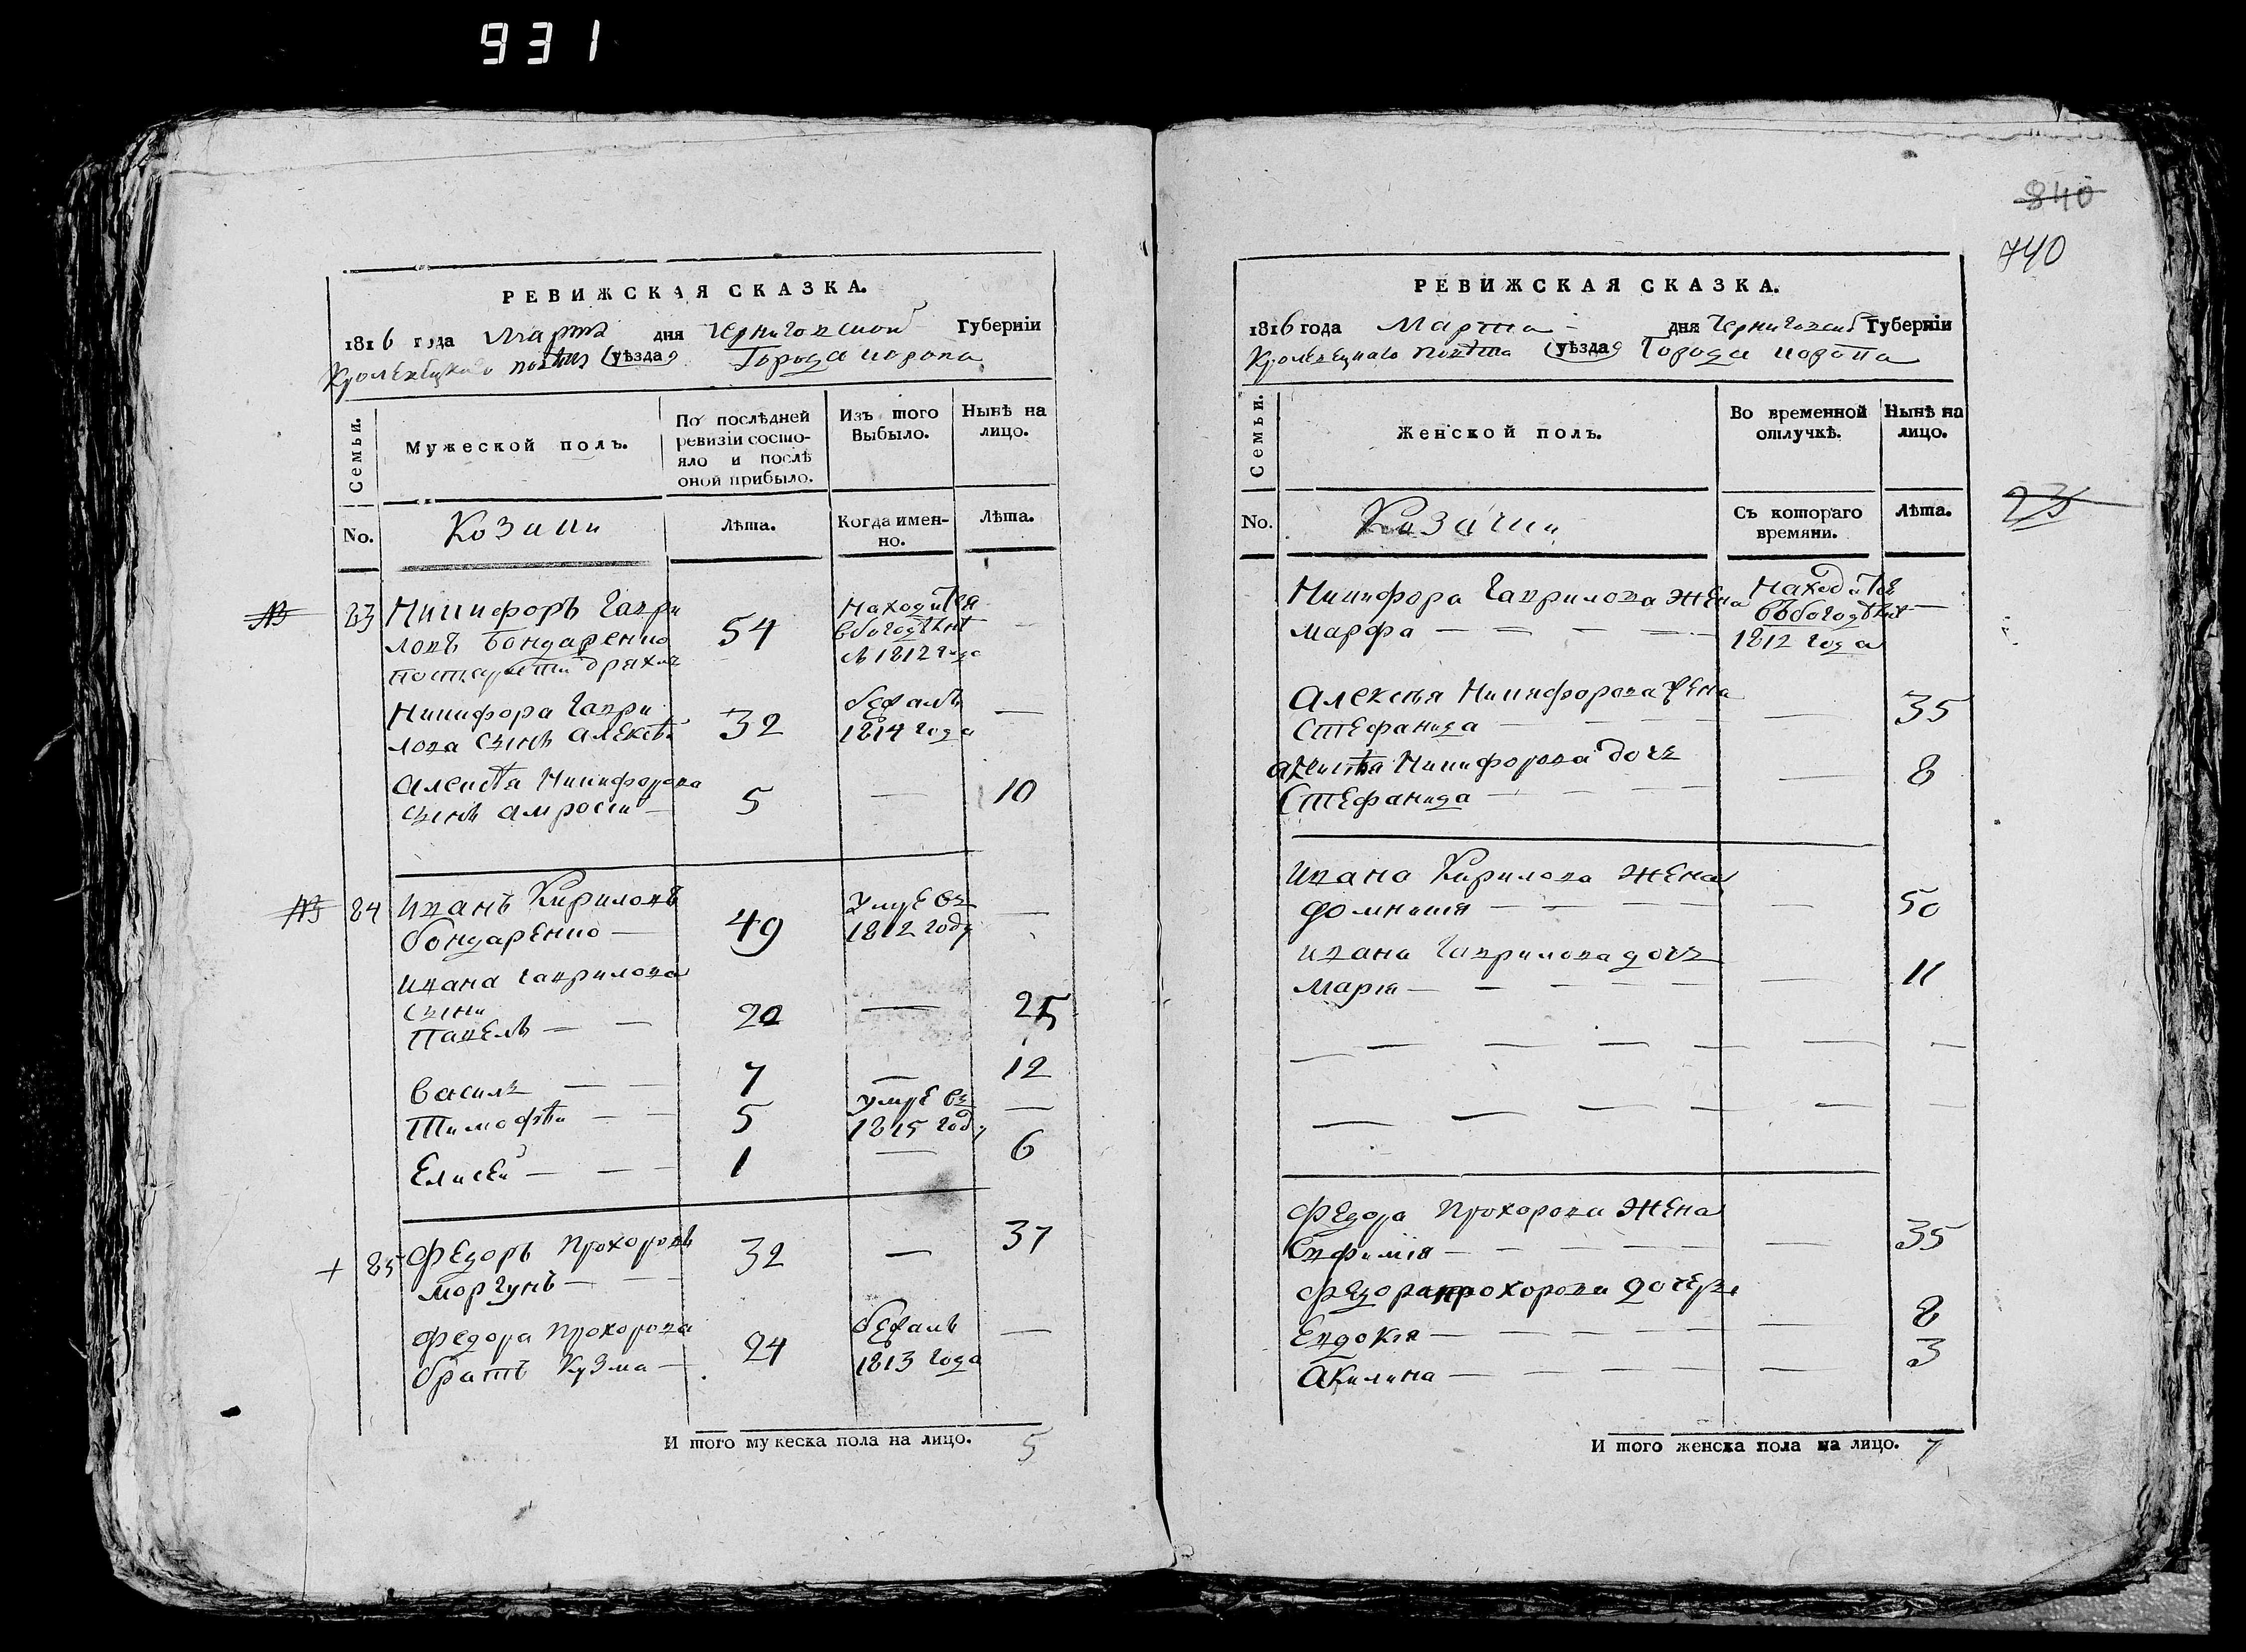 931
840
740
РЕВИЖСКАЯ СКАЗКА.
1816 года Марта дня Черниговской Губерніи
Кролевецкаго повѣта (уѣзда) Города Коропа
Семьи.
Мужеской полъ.
По послѣдней
ревизіи состо-
яло и послѣ
оной прибыло.
Изъ того
Выбыло.
Нынѣ на
лицо.
No.
Козаки
Лѣта.
Когда имен-
но.
Лѣта.
23 Никифоръ Гаври
ловъ Бондаренко
54
Находится
в богодѣлне
1812 года
Никифора Гаври
лова сынъ Алексѣй
32
бежалъ
1814 года
—
Алексѣя Никифорова
сынъ Амросии —
5 — 10
84 Иванъ Кириловъ
бондаренко —
49
умре въ
1812 году
—
Ивана Гаврилова
сыни
Павелъ — —
20 — 25
василь — — 7 — 12
Тимофѣи — — 5
умре въ
1815 году
—
Елисей — — 1 — 6
+ 85 Федоръ Прохоровъ
моргунъ — —
32 — 37
Федора Прохорова
братъ Кузма —
24
бежалъ
1813 года
—
И того мужеска пола на лицо. 5
РЕВИЖСКАЯ СКАЗКА.
1816 года Марта дня Черниговской Губерніи
Кролевецкаго Повѣта (уѣзда) Города Коропа
Семьи.
Женской полъ.
Во временной
отлучкѣ.
Нынѣ на
лицо.
No.
Козачки
Съ котораго
времяни.
Лѣта.
23
Никифора Гаврилова жена
марфа — — — —
Находится
въ богодѣлне
1812 года
—
Алексѣя Никифорова жена
Стефанида — — — 35
Алексѣя Никифорова дочь
Стефанида — — — 8
Ивана Кирилова жена
домникия — — — 50
Ивана Гаврилова дочь
Мария — — — 11
Федора Прохорова жена
Евфимія — — — 35
Федора прохорова дочери
Евдокія — — — 8
Акилина — — — 3
И того женска пола на лицо. 7